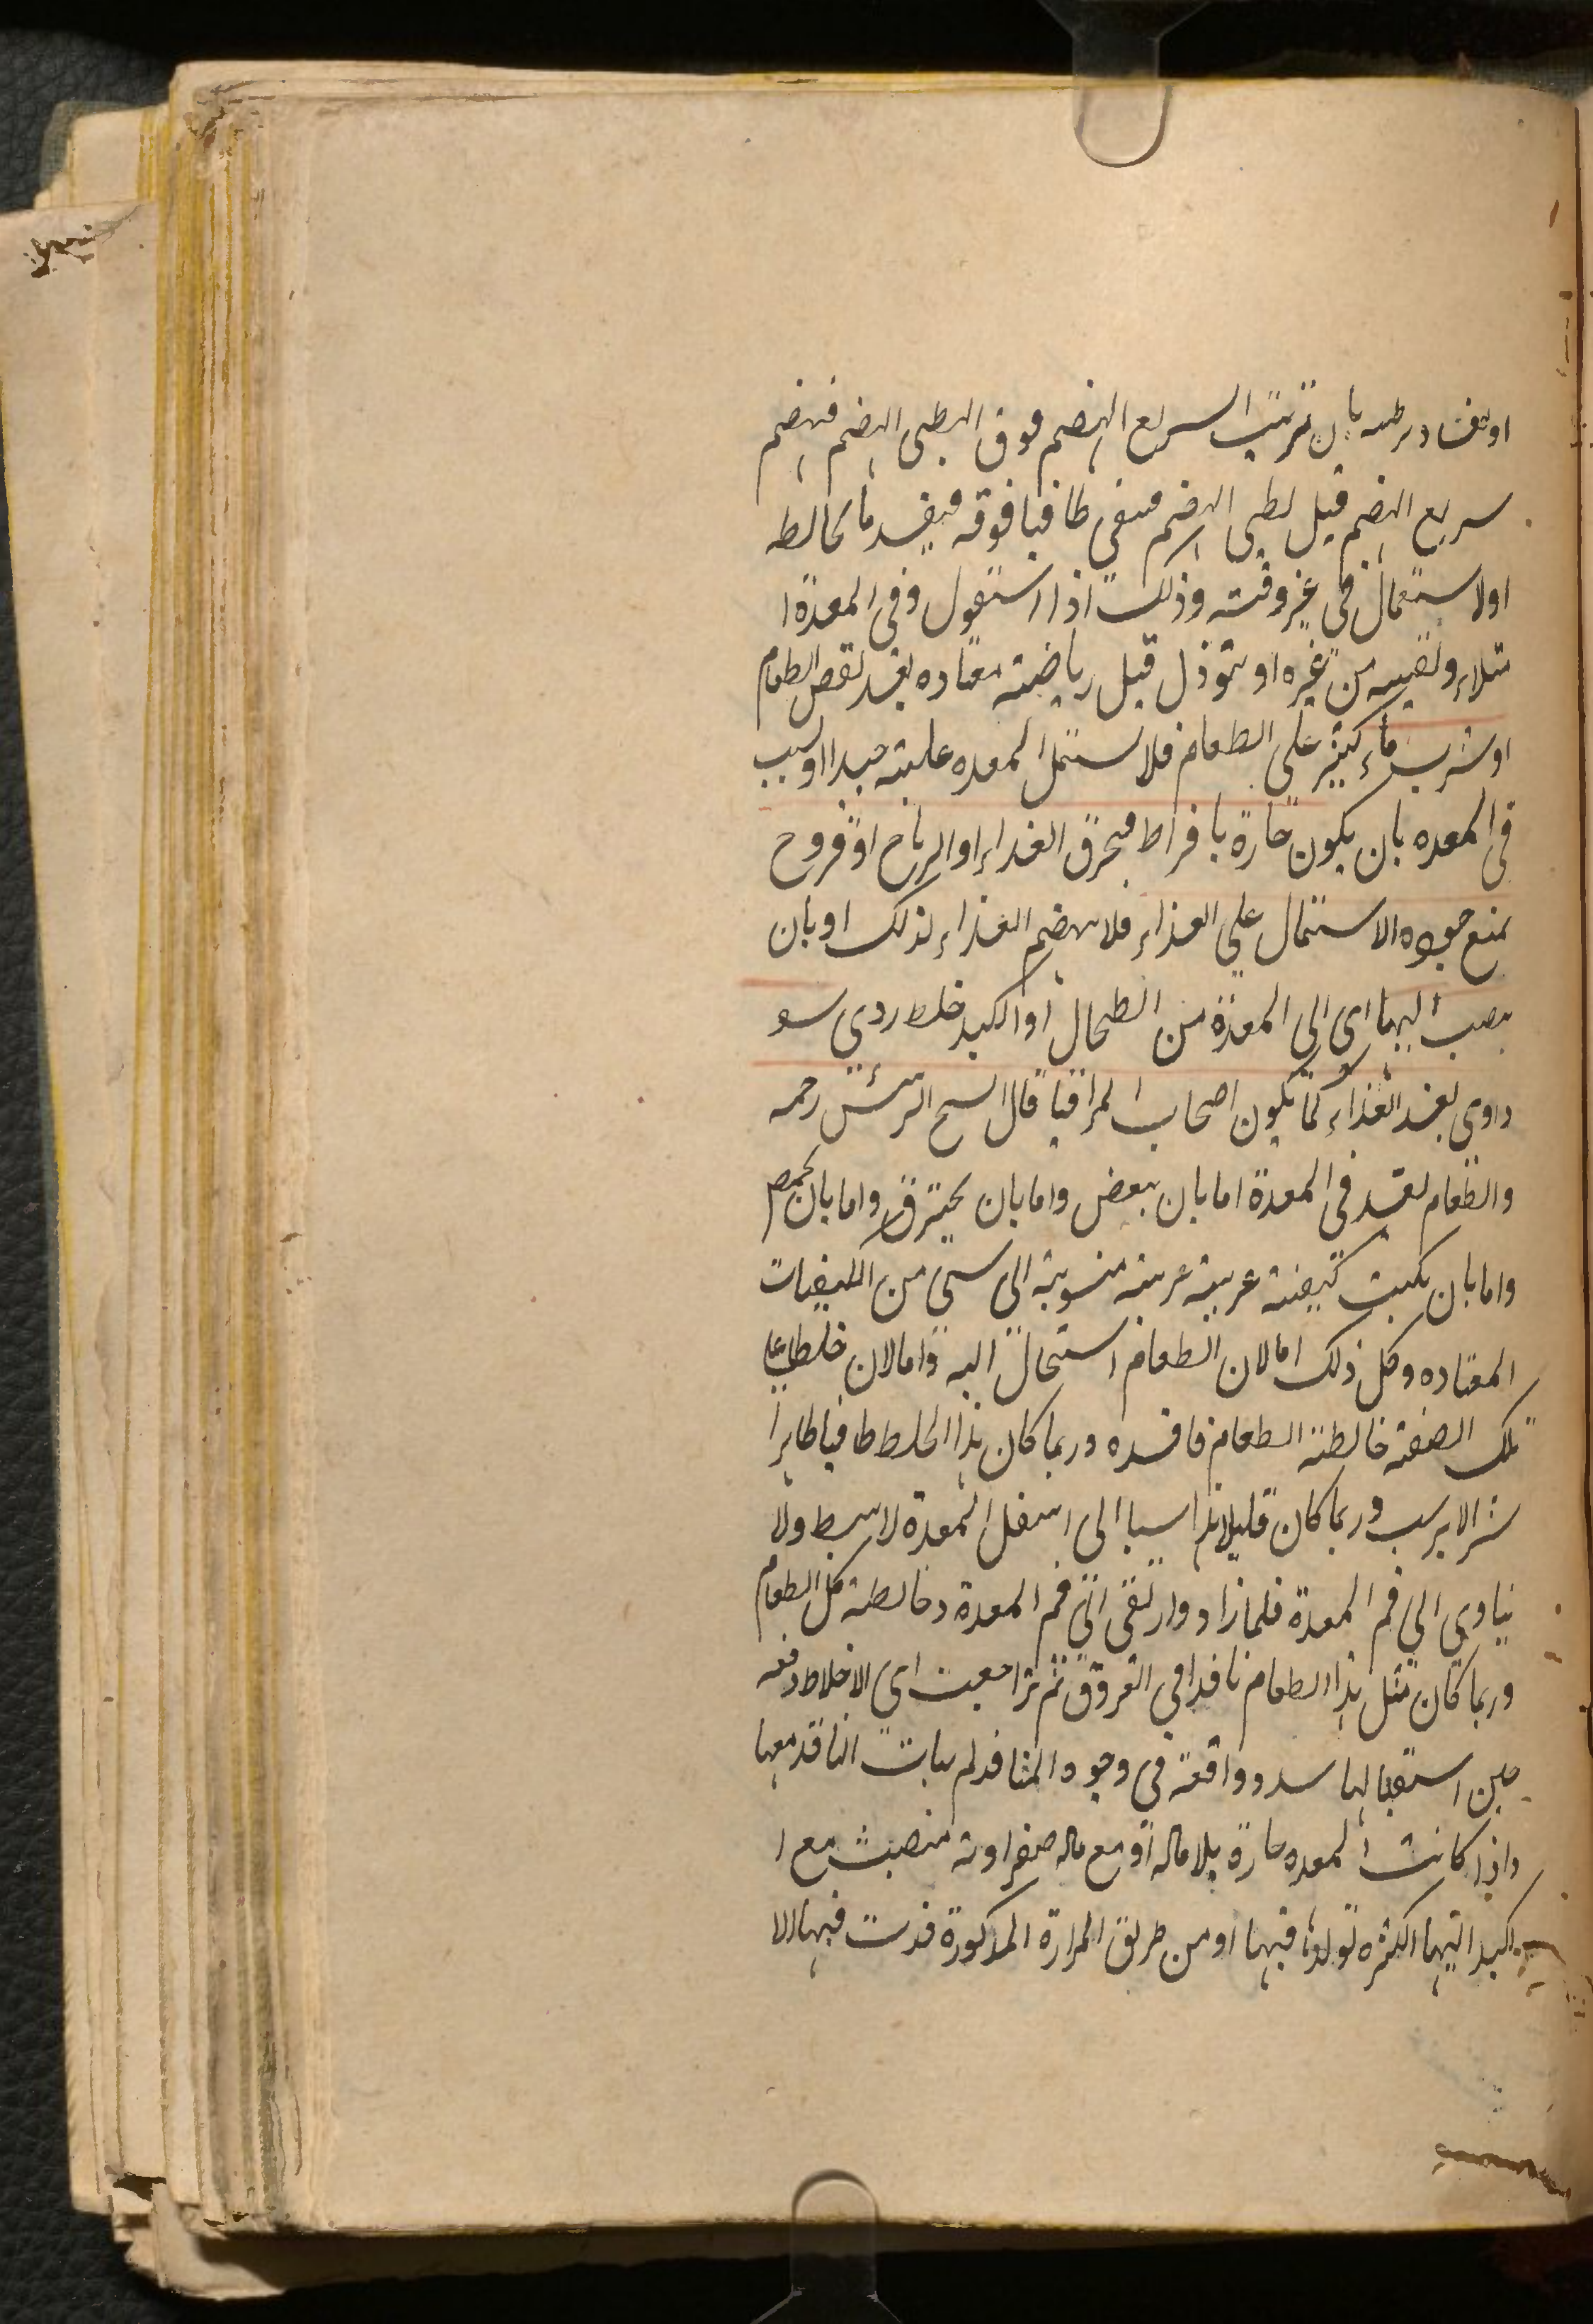 او بفساد ترطيبه بان ترتيب السريع الهضم فوق البطى الهضم فيهضم
سريع الهضم قبل بطى الهضم فيبقى طافيا فوقه فيفسد ما يخالطه
او لاستعمال فى غير وقته وذلك اذا استعمل وفى المعدة ا
متلاء وبقية من غيره او يتوذل قبل رياضة معتاده بعد نقص الطعام
او شرب ماء كثير على الطعام فلا يشتمل المعده عليه جيدا او لسبب
فى المعده بان يكون حارة بافراط فيحرق الغذاء او الرياح او قروح
يمنع جوده الاشتمال على الغذاء فلا يهضم الغذاء لذلك او بان
يصب اليها اى الى المعدة من الطحال او الكبد خلط ردى سو
داوى يفسد الغذاء كما يكون اصحاب المراقيا قال الشيخ الرئيس رحمه
والطعام يفسد فى المعدة اما بان يعفن واما بان يحترق واما بان يحمض
واما بان يكتسب كيفية غريبة غريبة منسوبة الى شى من الكيفيات
المعتاده وكل ذلك اما لان الطعام استحال اليه واما لان خلطا على
تلك الصفة خالطه الطعام فافسده وربما كان هذا الخلط طافيا طاهرا
شر الا يرسب وربما كان قليلا راسبا الى اسفل المعدة لا يبسط ولا
يتاوى الى فم المعدة فلما زاد وارتقى الى فم المعدة وخالطه كل الطعام
وربما كان مثل هذا الطعام نافذا فى العروق ثم تراجعت اى الاخلاط دفعه
حين استقبالها سدد واقعة فى وجوه المنافذ لم يتات النافذ معها
واذا كانت المعده حارة بلا ماده او مع ماده صفراوية منصبة مع ا
لكبد اليها لكثره تولدها فيها او من طريق المرارة المذكورة فسدت فيها الا